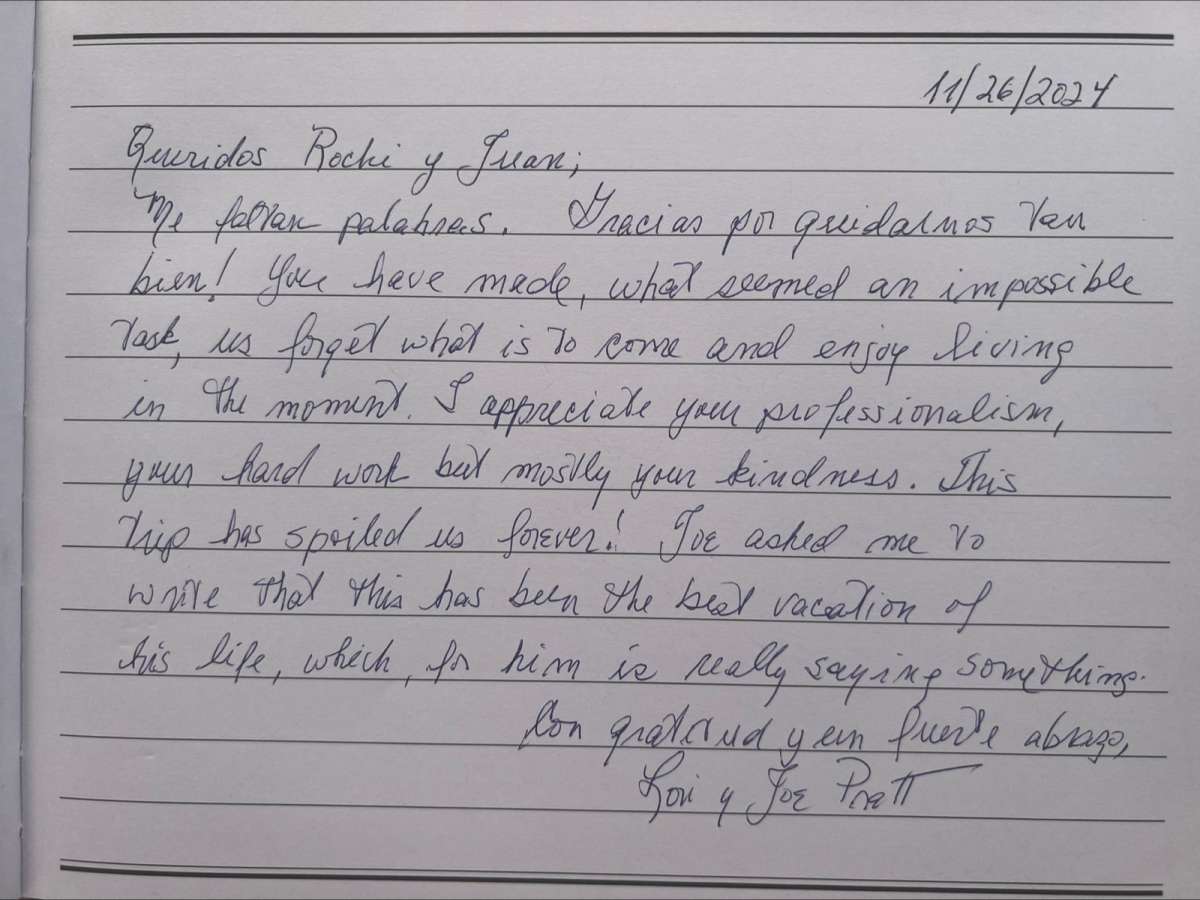 11/26/2024
Queridos Rochi y Juan;
Me faltan palabras. Gracias por quidarnos tan
bien! You have made, what seemed an impossible
task, us forget what is to come and enjoy living
in the moment. I appreciate your professionalism,
your hard work but mostly your kindness. This
trip has spoiled us forever! Joe asked me to
write that this has been the best vacation of
his life, which, for him is really saying something.
Con gratitud y un fuerte abrazo,
Lori y Joe Pratt